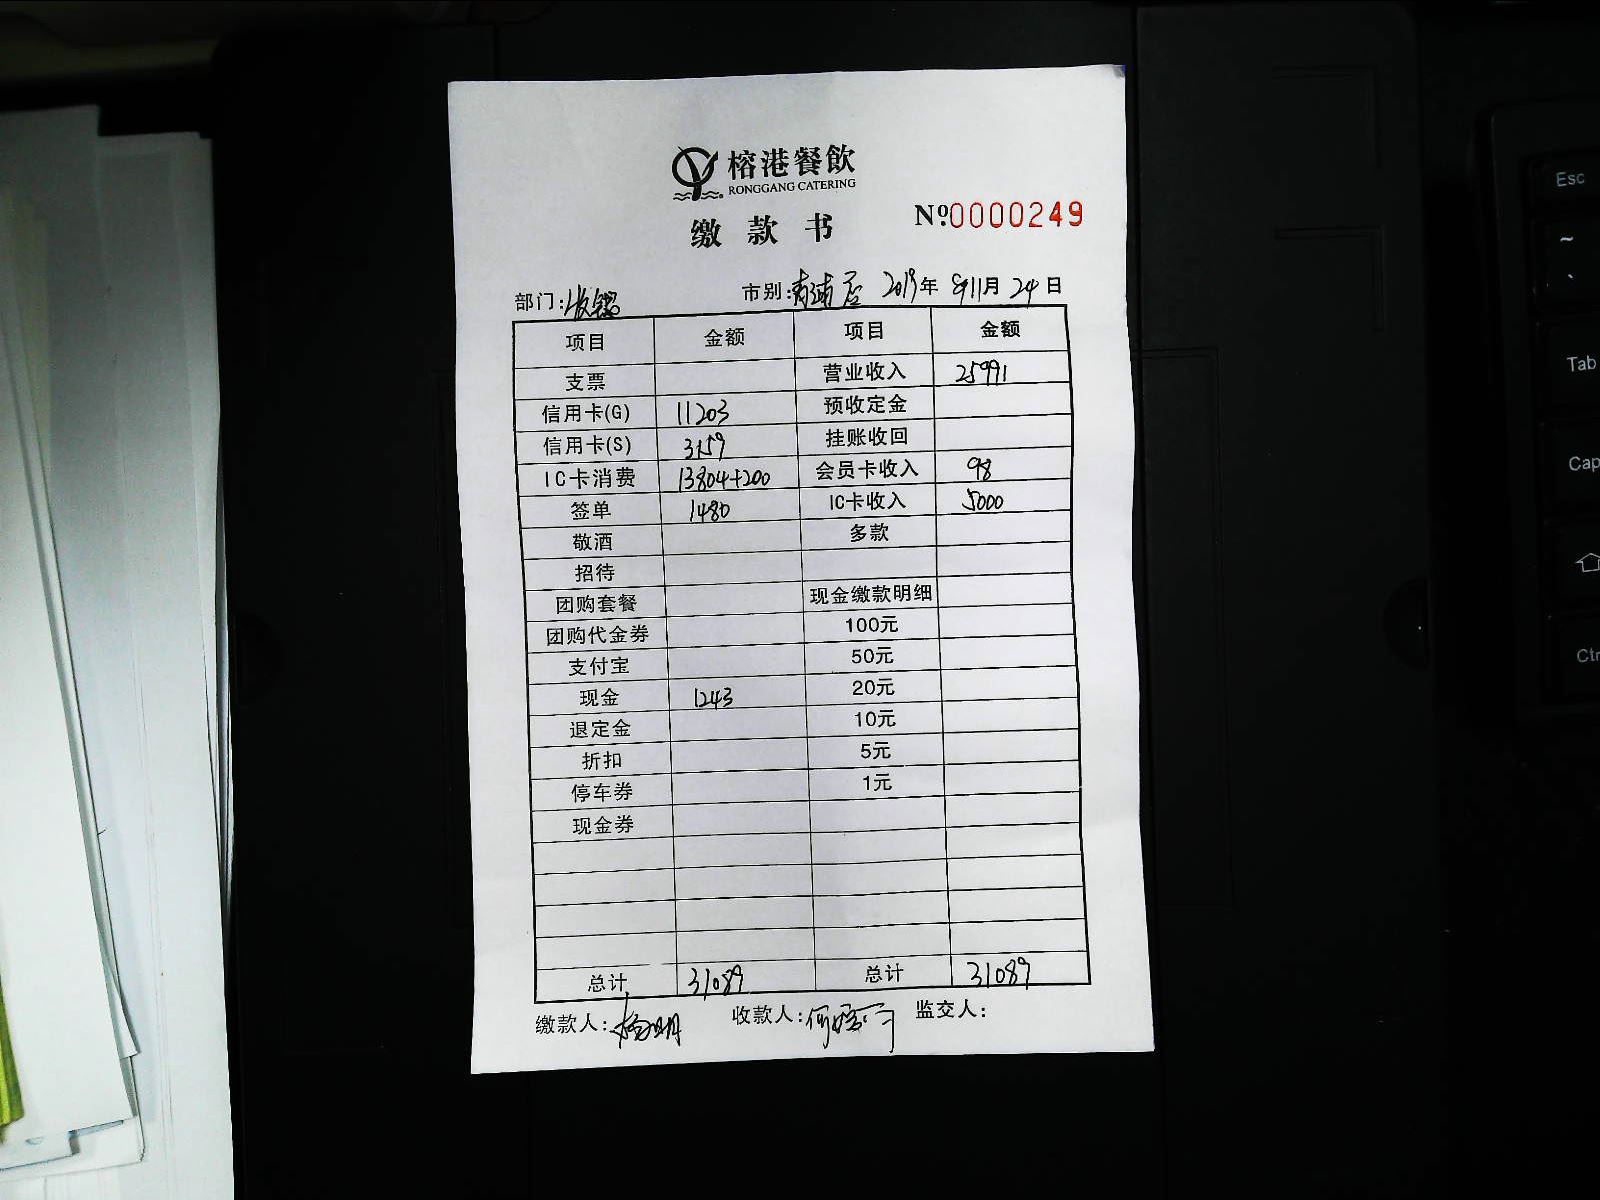 榕港餐飲
RONGGANG CATERING
缴款书
№0000249
部门:收银 市别:青浦店 2019年 11月 24日
项目 金额 项目 金额
支票 营业收入 25991
信用卡(G) 11203 预收定金
信用卡(S) 3159 挂账收回
IC卡消费 13804+200 会员卡收入 98
签单 1480 IC卡收入 5000
敬酒 多款
招待
团购套餐 现金缴款明细
团购代金券 100元
支付宝 50元
现金 1243 20元
退定金 10元
折扣 5元
停车券 1元
现金券
总计 31089 总计 31089
缴款人: 收款人: 监交人:
Esc
~
`
Tab
Cap
Ctr